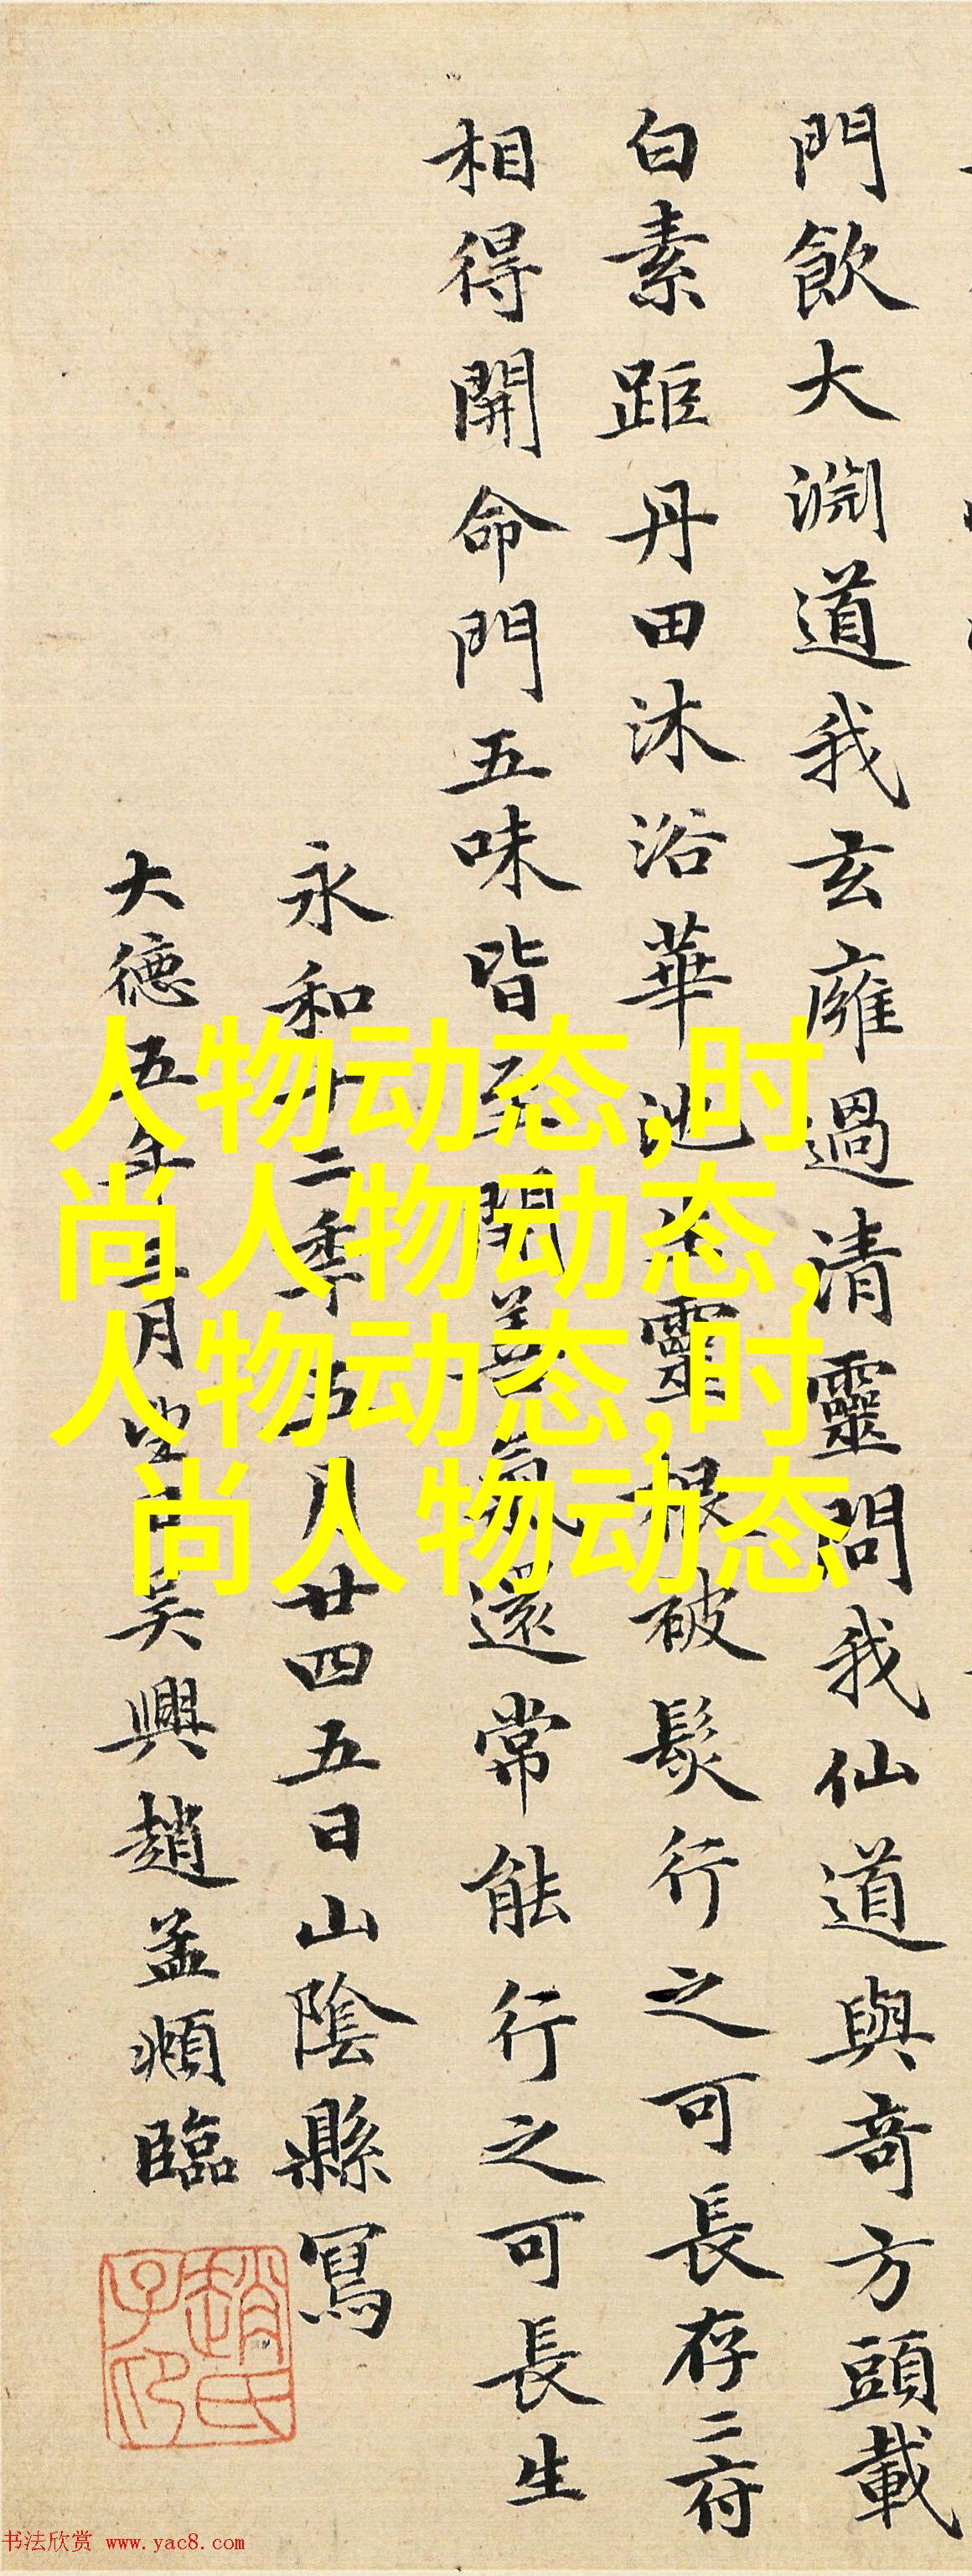 門飲大淵道我玄癕過清靈問我仙道與奇方頭載
白素距丹田沐浴華池生靈根被髮行之可長存二府
相得開命門五味皆至開善氣還常能行之可長生
永和十二年五月廿四五日山陰縣寫
大德五年 月 吳興趙孟頫臨
趙氏子印
人物动态,时
尚人物动态,
人物动态,时
尚人物动态
书法欣赏 www.yac8.com